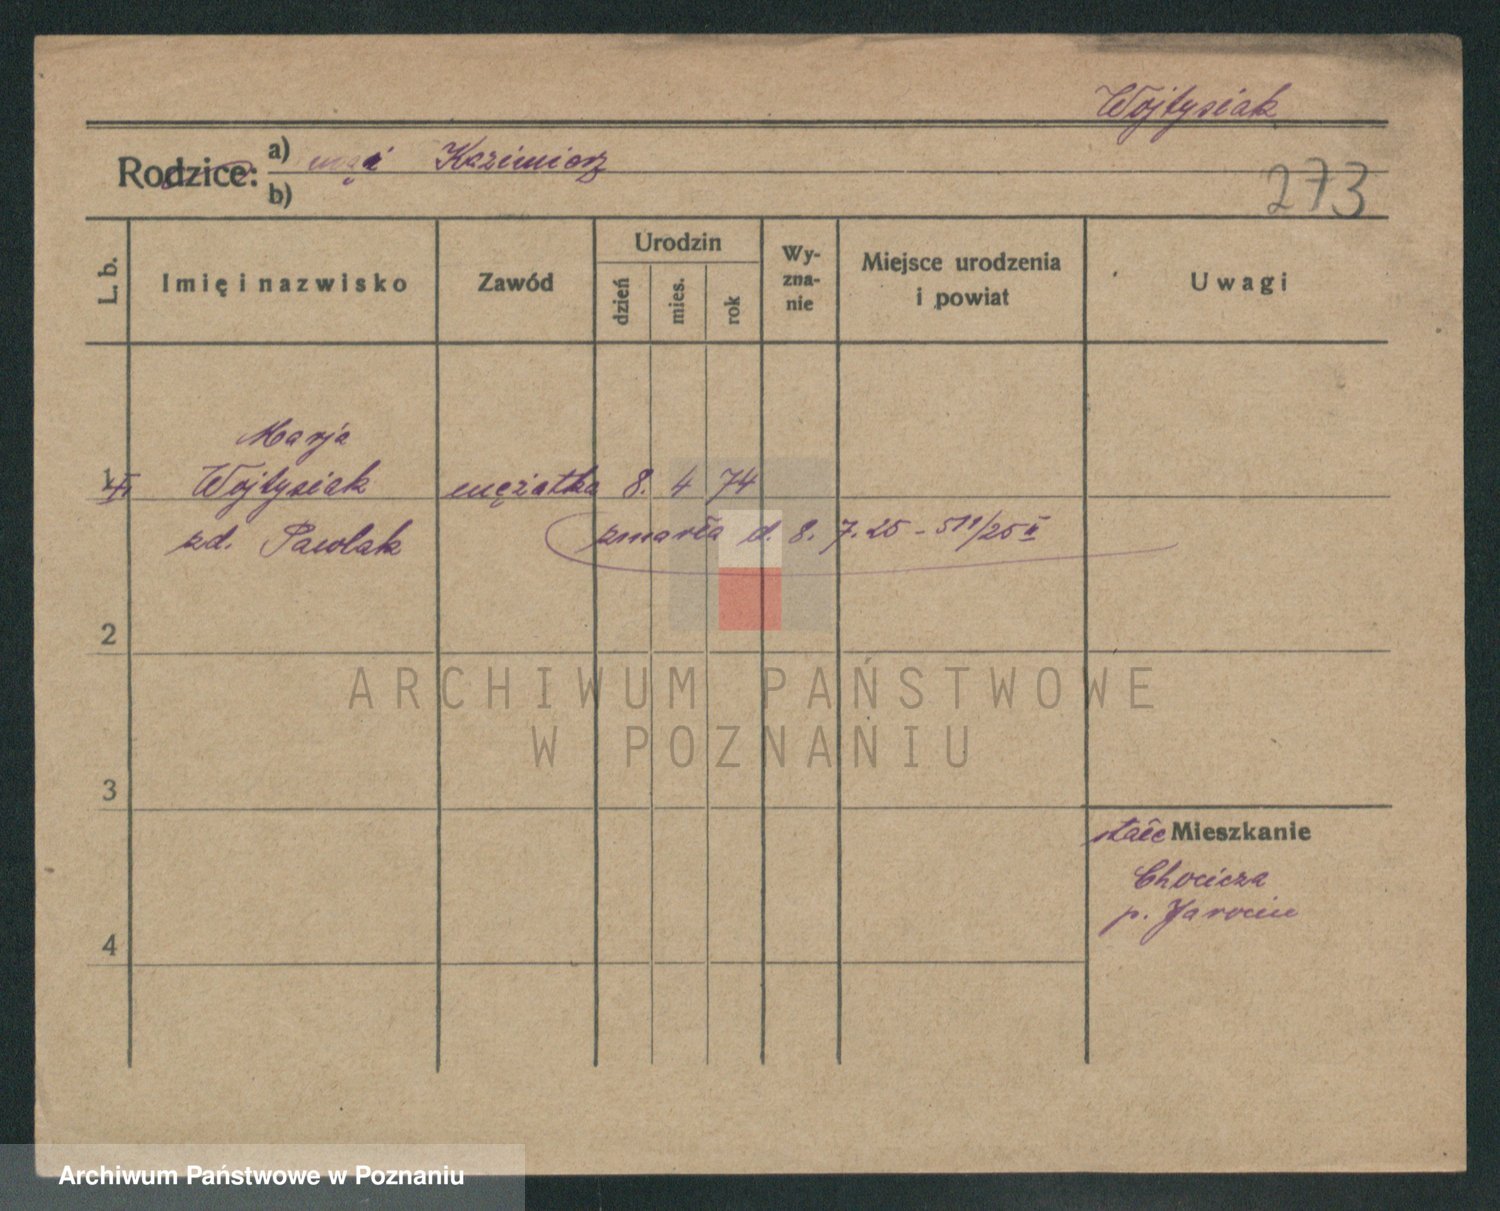 Wojtysiak
Rodzice: a) mąż Kazimierz
b)
273
L. b.
Imię i nazwisko
Zawód
Urodzin
dzień
mies.
rok
Wy-
zna-
nie
Miejsce urodzenia
i powiat
Uwagi
Marja
1 Wojtysiak mężatka 8. 4 74
zd. Pawlak zmarła d. 8. 7. 25 - 511/25 II
2
ARCHIWUM PAŃSTWOWE
W POZNANIU
3
stałe Mieszkanie
Chocicza
p. Jarocin
4
Archiwum Państwowe w Poznaniu